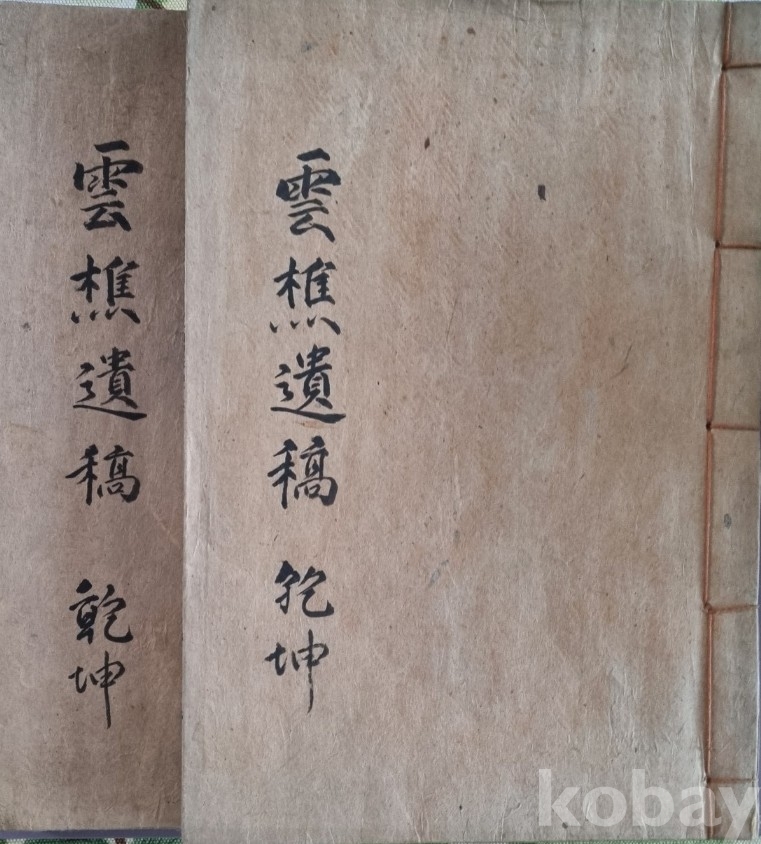 雲樵遺稿 乾坤
雲樵遺稿 乾坤
kobay